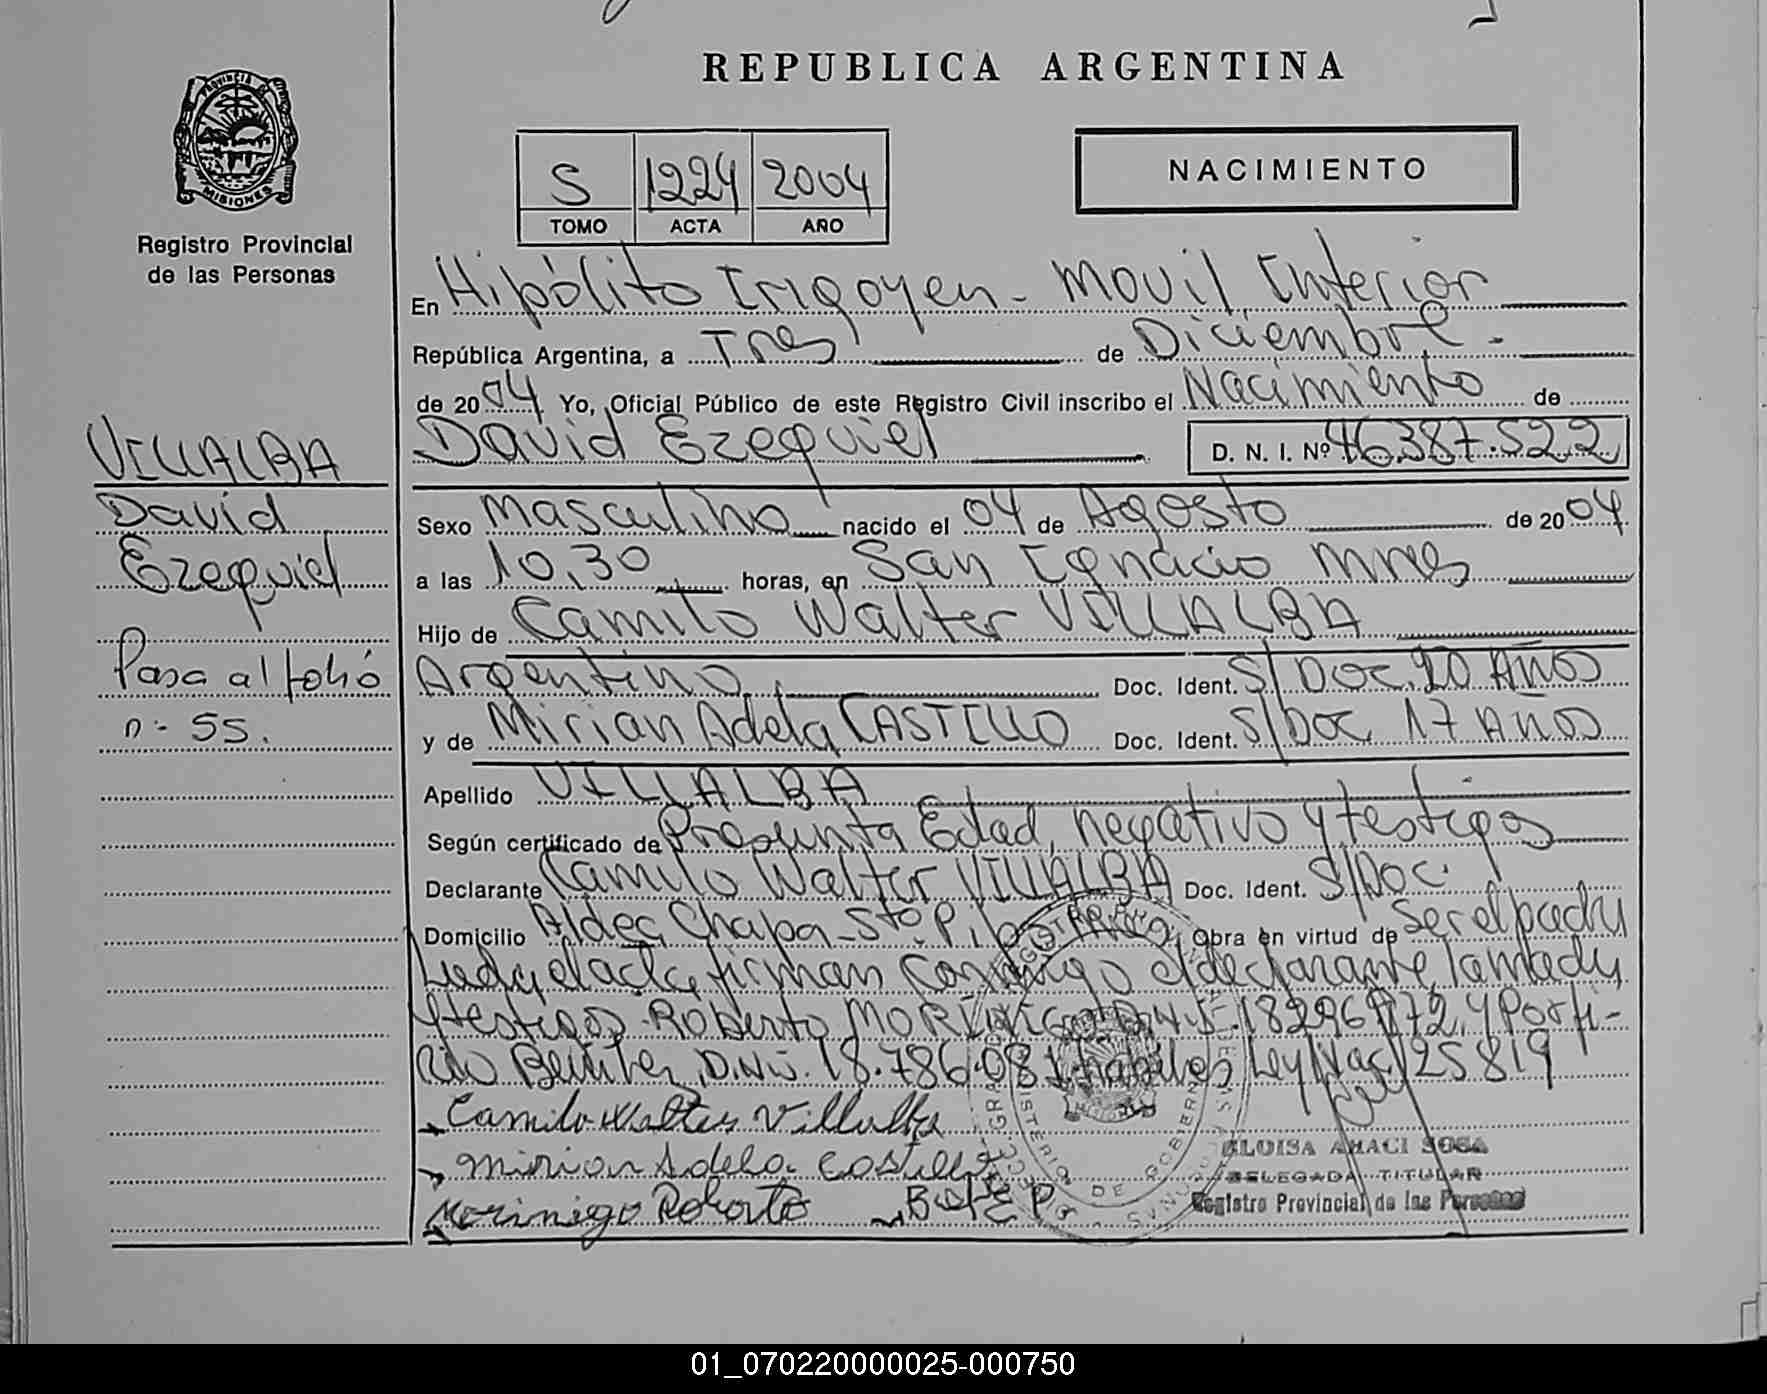 REPUBLICA ARGENTINA
PROVINCIA DE
MISIONES
Registro Provincial
de las Personas
S 1224 2004
TOMO ACTA AÑO
NACIMIENTO
En Hipólito Irigoyen - Movil Interior
República Argentina, a Tres de Diciembre -
de 2004 Yo, Oficial Público de este Registro Civil inscribo el Nacimiento de
David Ezequiel D. N. I. Nº 46.387.522
VILLALBA
David
Ezequiel
Pasa al folio
n- 55.
Sexo Masculino nacido el 04 de Agosto de 2004
a las 10,30 horas, en San Ignacio Mnes
Hijo de Camilo Walter VILLALBA
Argentino, Doc. Ident. S/Doc. 20 AÑOS
y de Mirian Adela CASTILLO Doc. Ident. S/Doc 17 AÑOS
Apellido VILLALBA
Según certificado de Presunta Edad, negativo y testigos
Declarante Camilo Walter VILLALBA Doc. Ident. S/Doc.
Domicilio Aldea Chapa - Sto. Pipo Obra en virtud de ser el padre
Leída el acta, firman conmigo el declarante, la madre
y testigos - Roberto MORINIGO D.N.I. y Porfi-
rio Benitez, D.N.I. 18.786.081 habiles Ley Nac. 25819
Camilo Walter Villalba
Mirian Adela Castillo
Morinigo Roberto
ELOISA ARACI SOSA
DELEGADA TITULAR
Registro Provincial de las Personas
01_070220000025-000750